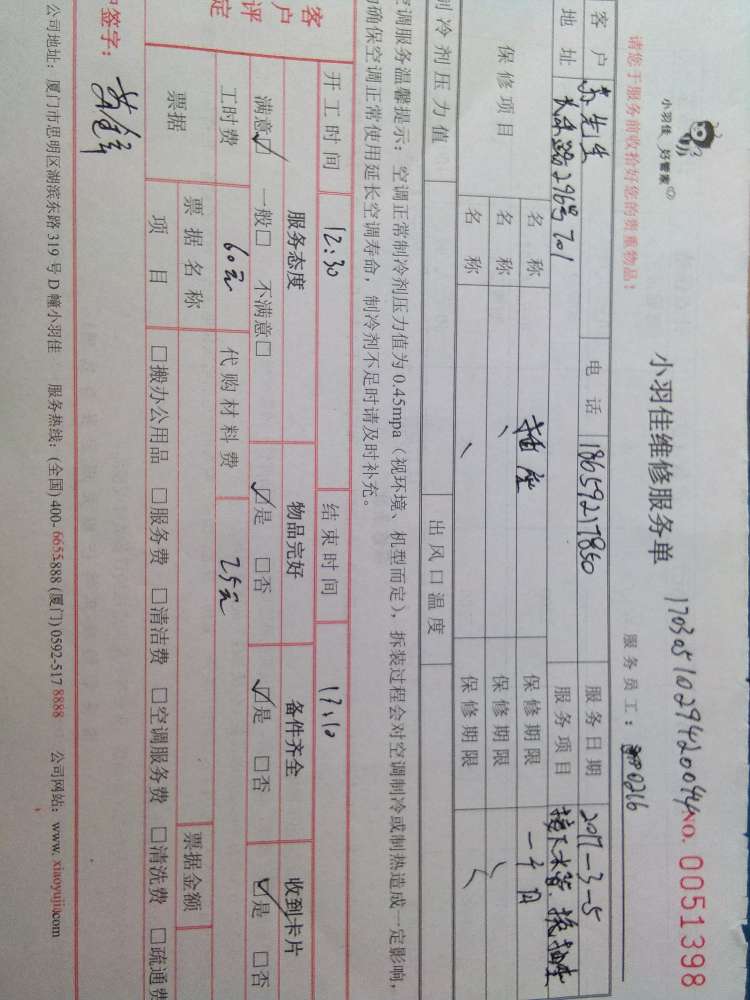 小羽佳 好管家
请您于服务前收拾好您的贵重物品:
小羽佳维修服务单
NO. 0051398
服务员工: 0216
客户 苏先生 电话 18659217850 服务日期 2017-3-5
地址 长乐路296号701 服务项目 接下水管、换插座
保修项目 名称 插座 保修期限 一个月
名称 、 保修期限
名称 、 保修期限
制冷剂压力值 出风口温度
空调服务温馨提示: 空调正常制冷剂压力值为0.45mpa(视环境、机型而定),拆装过程会对空调制冷或制热造成一定影响,
确保空调正常使用延长空调寿命,制冷剂不足时请及时补充。
开工时间 12:30 结束时间 13:10
客户评定 服务态度 物品完好 备件齐全 收到卡片
满意☑ 一般□ 不满意□ ☑是 □否 ☑是 □否 ☑是 □否
工时费 60元 代购材料费 25元
票据 票据名称 票据金额
项目 □搬办公用品 □服务费 □清洁费 □空调服务费 □清洗费 □疏通费
签字:
公司地址: 厦门市思明区湖滨东路319号D幢小羽佳 服务热线: (全国)400-6655888 (厦门)0592-5178888 公司网站: www.xiaoyujia.com